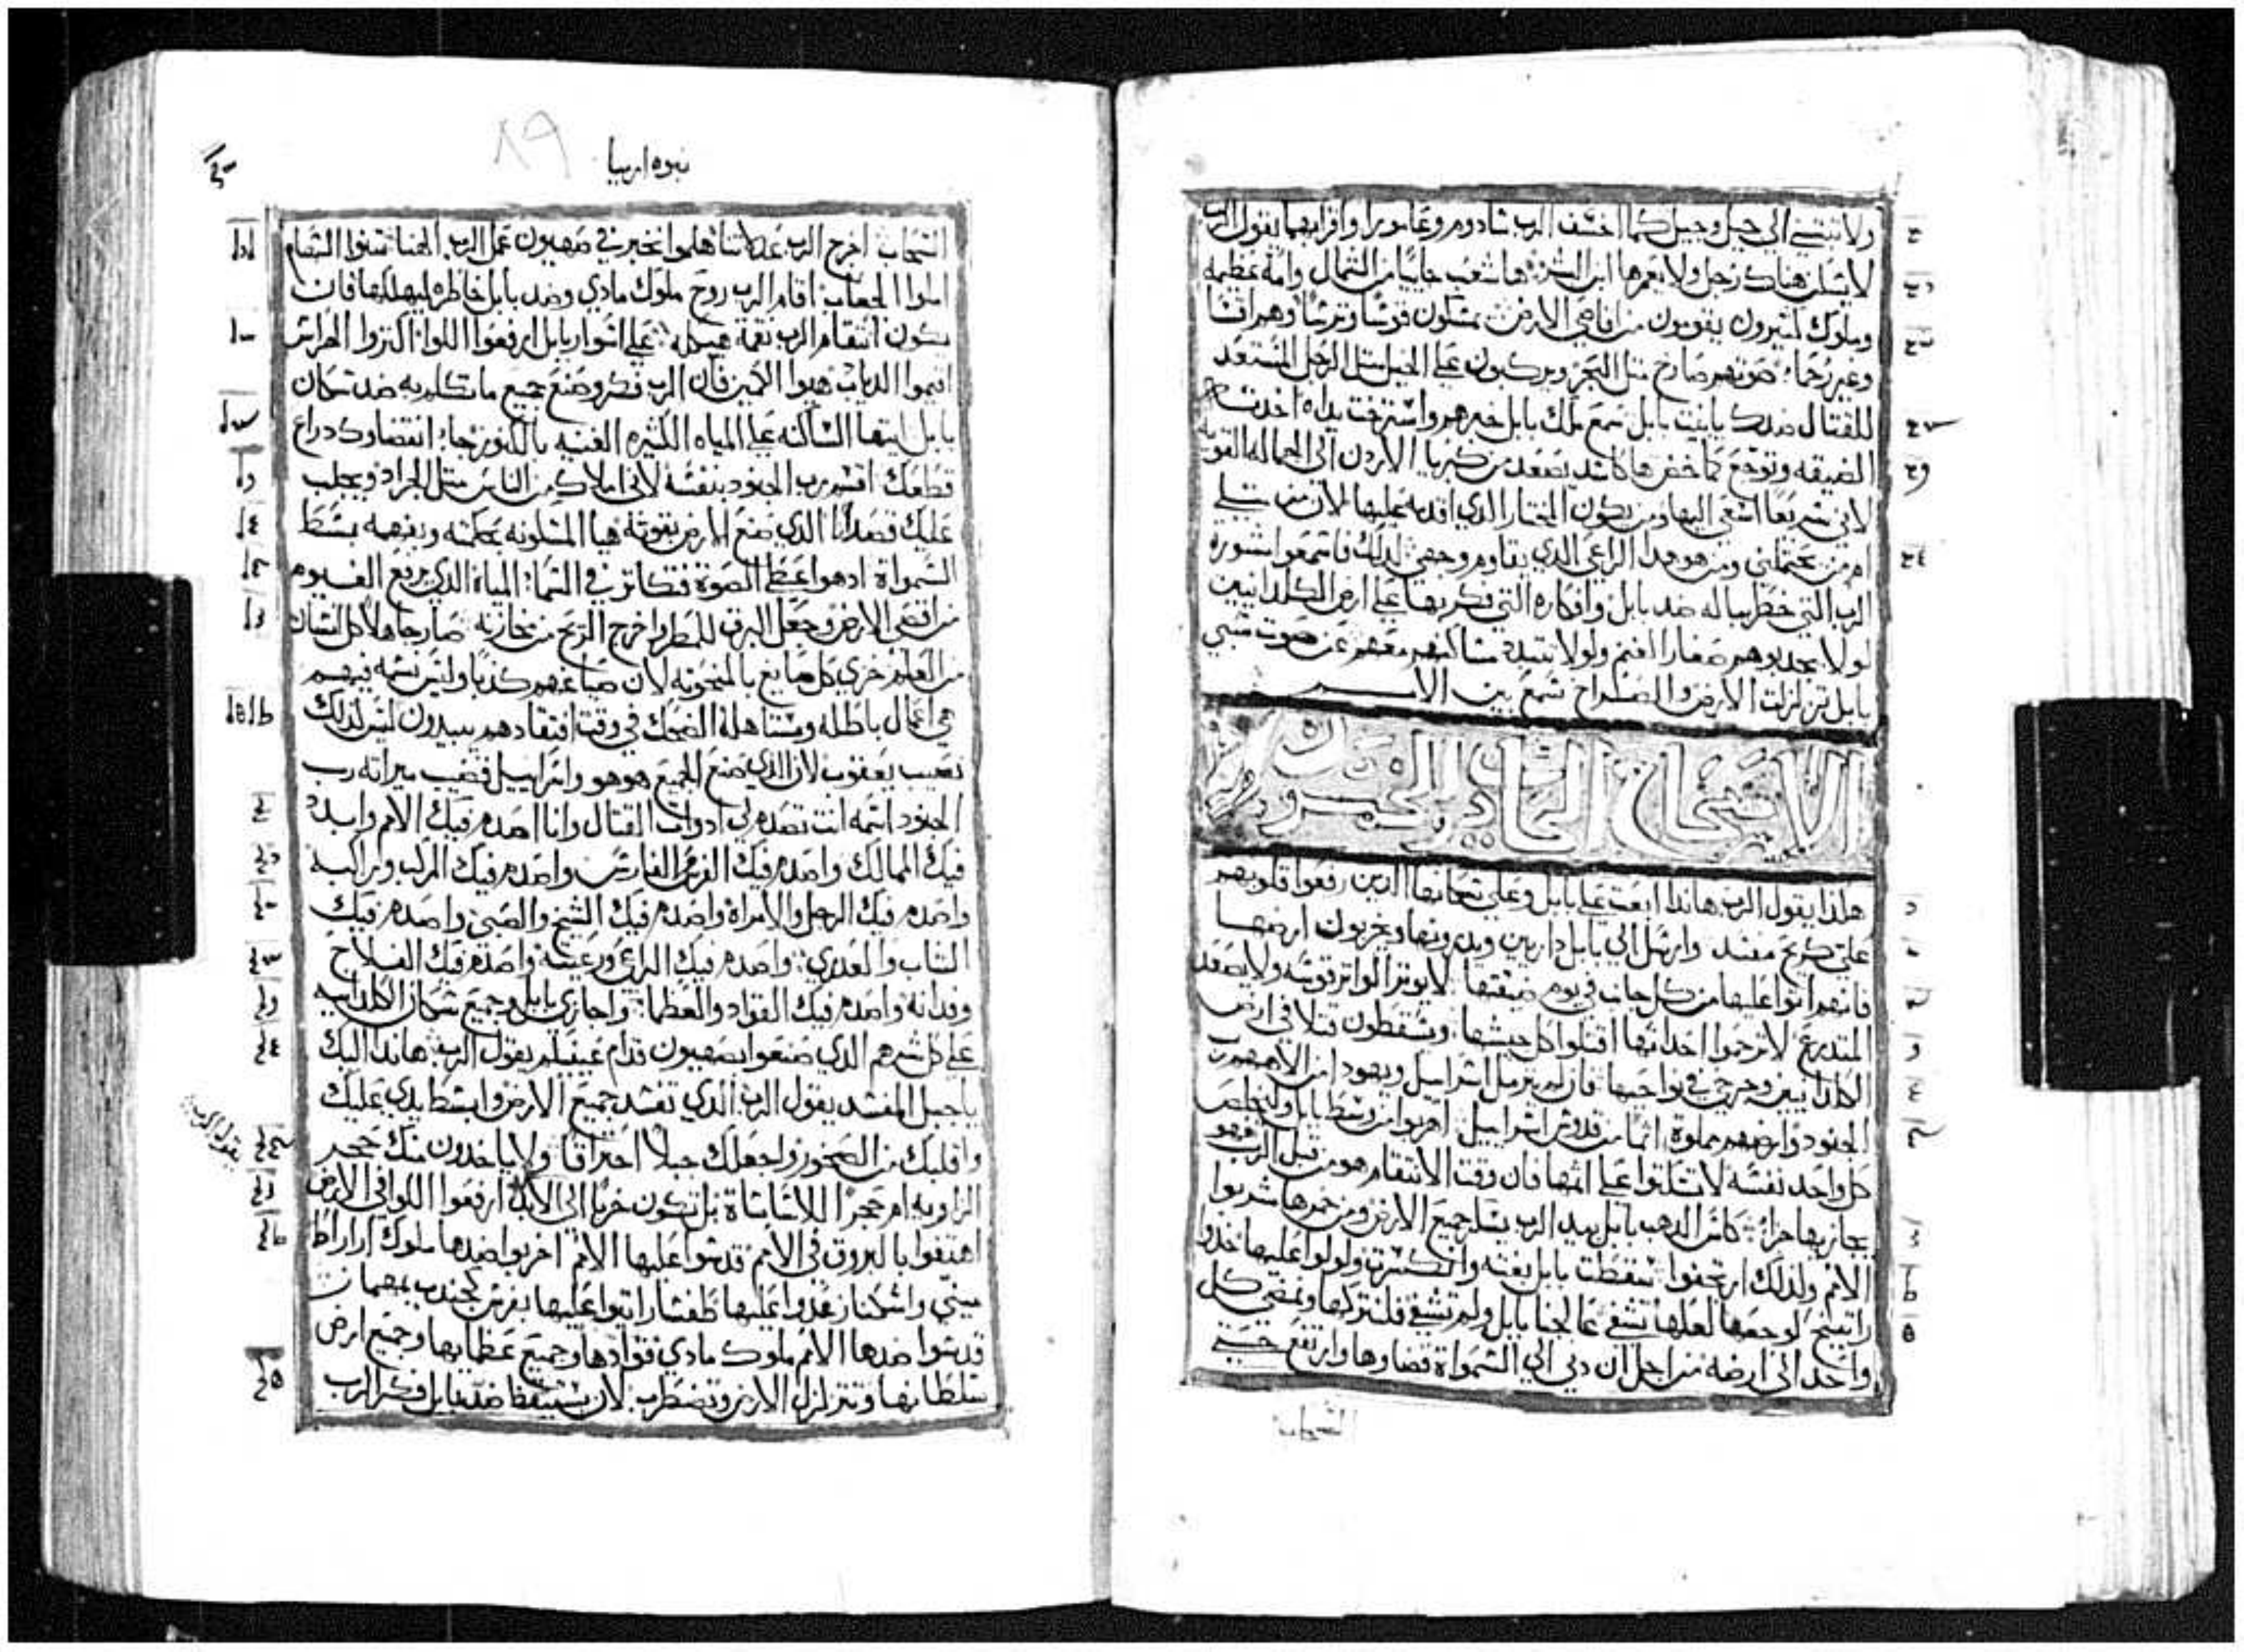 ولا تبتني الي جيل وجيل كما اخسف الرب سادوم وغامورا واقرايهما يقول الرب
لا يسكن هناك رجل ولا يعمرها ابن البشر ها شعب جاييا من الشمال وامه عظيمه
وملوك كثيرون يقومون من اقاصي الارض يمسكون قوسا وترسا وهم اقسا
وغير رحما صوتهم صارخ مثل البحر ويركبون علي الخيل مثل الرجل المستعد
للقتال ضدك يا بنت بابل سمع ملك بابل خبرهم واسترخت يداه اخذته
الضيقه وتوجع كما خض ها كاسد يصعد من كبريا الاردن الي الجماله القويه
لاني سريعا اسعي اليها ومن يكون المختار الذي اقدمه عليها لان من مثلي
ام من يحتملني ومن هو هذا الراعي الذي يقاوم وجهي لذلك فاسمعوا مشورة
الرب التي خطر بباله ضد بابل وافكاره التي فكر بها علي ارض الكلدانيين
لولا يجدبوهم صغار الغنم ولولا تتبدد مساكنهم معهم عن صوت سبي
بابل تزلزلت الارض والصراخ سمع بين الامم
الاصحاح الحادي والخمسون
هكذا يقول الرب هانذا ابعت علي بابل وعلي سكانها الذين رفعوا قلوبهم
علي كريح مفسد وارسل الي بابل داريين ويدرونها ويخربون ارضها
فانهم اتوا عليها من كل جانب في يوم ضيقتها لا يوتر الواتر قوسه ولا يصعد
المتدرع لا ترحموا احداثها اقتلوا كل جيشها ويسقطون قتلا في ارض
الكلدانيين وجرحي في نواحيها فان لم يترمل اسراييل ويهودا من الاههم رب
الجنود وارضهم مملوة اثما من قدوس اسراييل اهربوا من وسط بابل وليخلص
كل واحد نفسه لا تسكتوا علي اثمها فان وقت الانتقام هو من قبل الرب وهو
يجازيها جزا كاس الذهب بابل بيد الرب يسكر جميع الارض ومن خمرها شربوا
الامم ولذلك ارتجفوا سقطت بابل بغته وانكسرت ولولوا عليها خذوا
راتينج لوجعها لعلها تشفي عالجنا بابل ولم تشفي فلنتركها ونمضي كل
واحد الي ارضه من اجل ان دني الي السموات قضاوها وارتفع حتي
السحاب
نبوه ارميا
السحاب اخرج الرب عدلاتنا هلموا نخبر في صهيون عمل الرب الهنا سنوا السهام
املوا الجعاب اقام الرب روح ملوك مادي وضد بابل خاطره ليهلكها فان
يكون انتقام الرب نقمة هيكله علي اسوار بابل ارفعوا اللوا اكتروا الحراس
اقيموا الدياب هيوا الكمين فان الرب فكر وصنع جميع ما تكلم به ضد سكان
بابل ايتها الساكنه علي المياه الكثيره الغنيه بالكنوز جا انقضاوك دراع
قطعك اقسم رب الجنود بنفسه لاني املاك من الناس مثل الجراد ويجلب
عليك قصدانا الذي صنع الارض بقوته هيا المسكونه بحكمته وبفهمه بسط
السموات ادهوا عطي الصوة فتكاتر في السما المياه الذي يرفع الغيوم
من اقصي الارض وجعل البرق للمطر واخرج الريح من مخازنه صار جاهلا كل انسان
من العلم خزي كل صايغ بالمنحوته لان صياغتهم كذبا وليس نسمه فيهم
هي اعمال باطله ومستاهلة الضحك في وقت افتقادهم يبيدون ليس كذلك
نصيب يعقوب لان الذي صنع الجميع هو هو واسراييل قضيب ميراته رب
الجنود اسمه انت تصدم لي ادوات القتال وانا اصدم فيك الامم وابيد
فيك الممالك واصدم فيك الفرس الفارس واصدم فيك المركب وراكبه
واصدم فيك الرجل والامراه واصدم فيك الشيخ والصبي واصدم فيك
الشاب والعدري واصدم فيك الراعي ورعيته واصدم فيك الفلاح
وفدانه واصدم فيك القواد والعظما واجازي بابل وجميع سكان الكلدانيه
علي كل شرهم الذي صنعوا بصهيون قدام عينيكم يقول الرب هانذا اليك
يا جبل المفسد يقول الرب الذي تفسد جميع الارض وابسط يدي عليك
واقلبك من الصخور واجعلك جبلا احتراقا ولا ياخدون منك حجر
الزاويه ام حجرا للاساساة بل تكون خربا الي الابد ارفعوا اللوا في الارض
يقول الرب
اهتفوا بالبروق في الامم قدسوا عليها الامم اخربوا ضدها ملوك اراراط
ميني واشكناز عدوا عليها طفسار اتيوا عليها بفرس كجندب بمهمات
قدسوا ضدها الامم ملوك مادي قوادها وجميع عظمايها وجميع ارض
سلطانها وتتزلزل الارض وتضطرب لان يستيقظ ضد بابل فكر الرب